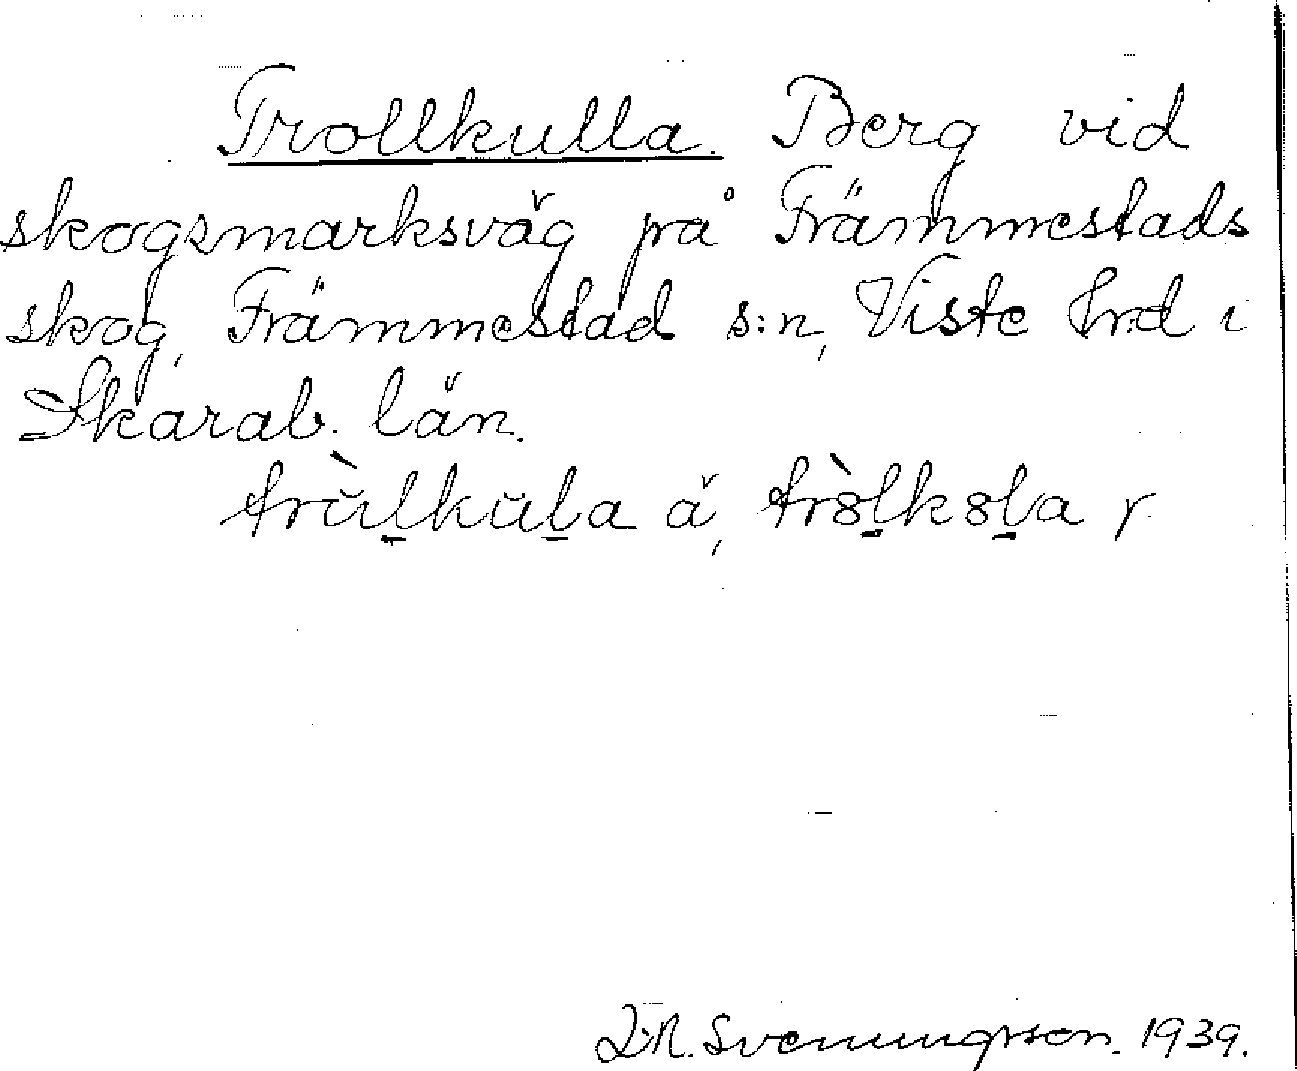 Trollkulla. Berg vid
skogsmarksväg på Främmestads
skog, Främmestad s:n, Viste hrd i
Skarab. län.
trùl̠kŭl̠a ä, trò̠l̠k8l̠a y.
Svenungsson. 1939.